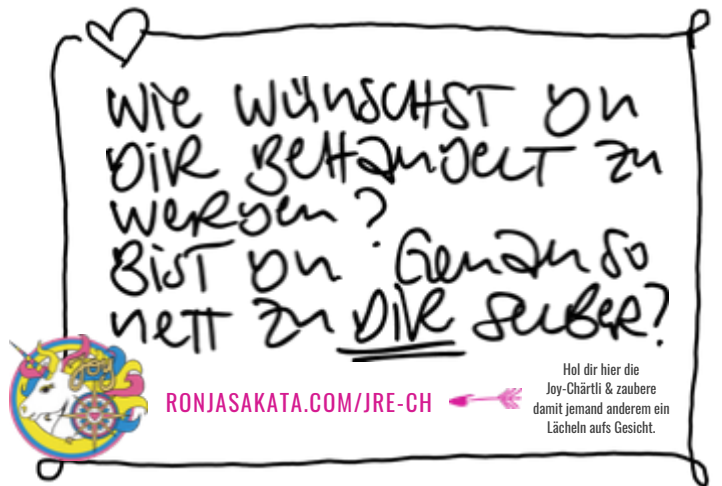 Wie wünschst du
DIR BEHANDELT zu
werden?
Bist du genau so
nett zu DIR selber?
joy
RONJASAKATA.COM/JRE-CH
Hol dir hier die
Joy-Chärtli & zaubere
damit jemand anderem ein
Lächeln aufs Gesicht.